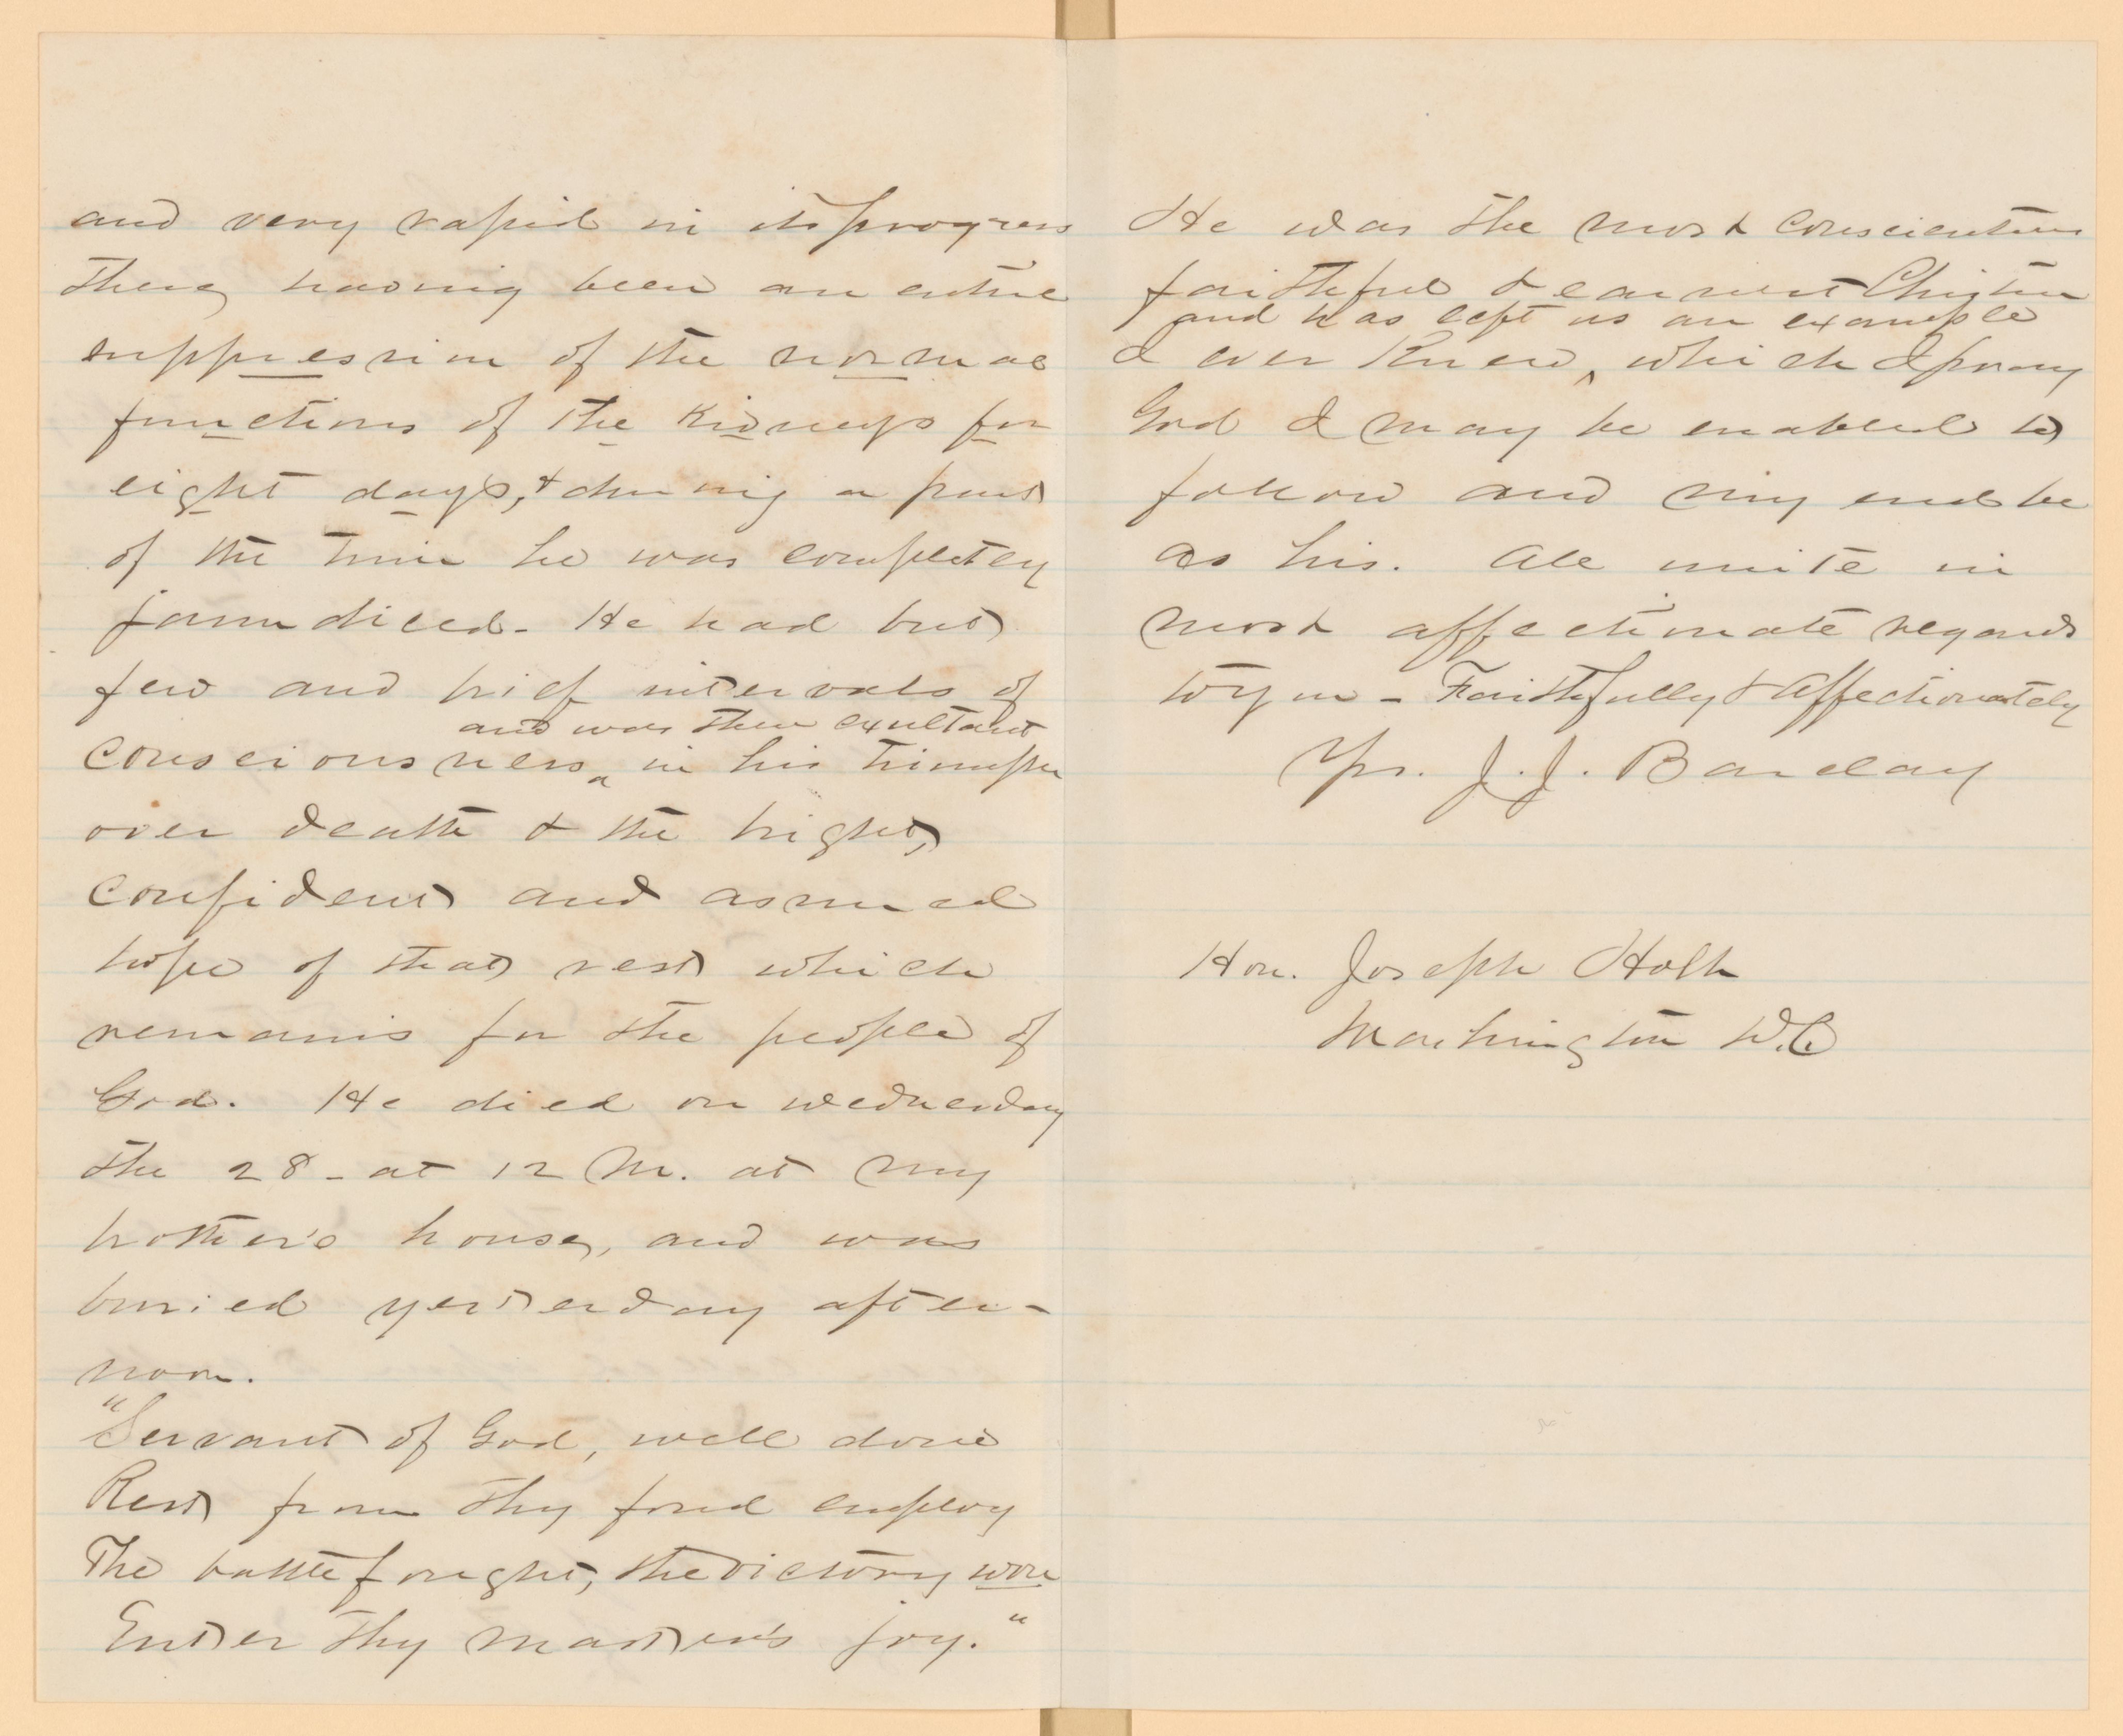 and very rapid in its progress
there having been an entire
suppression of the normal
functions of the Kidneys for
eight days, & during a part
of the time he was completely
jaundiced. He had but
few and brief intervals of
and was then exultant
consciousness ‸ in his triumph
over death & the bright,
confident and assured
hope of that rest which
remains for the people of
God. He died on Wednesday
the 28 - at 12 M. at my
brother's house, and was
buried yesterday after-
noon.
"Servant of God, well done
Rest from thy loved employ
The battle fought, the victory won
Enter thy master's joy."
He was the most conscientious
faithful & earnest Christian
and has left us an example
I ever Knew ‸, which I pray
God I may be enabled to
follow and my end be
as his. All unite in
most affectionate regards
to you - Faithfully & Affectionately
Yrs. J. J. Barclay
Hon. Joseph Holt
Washington D.C